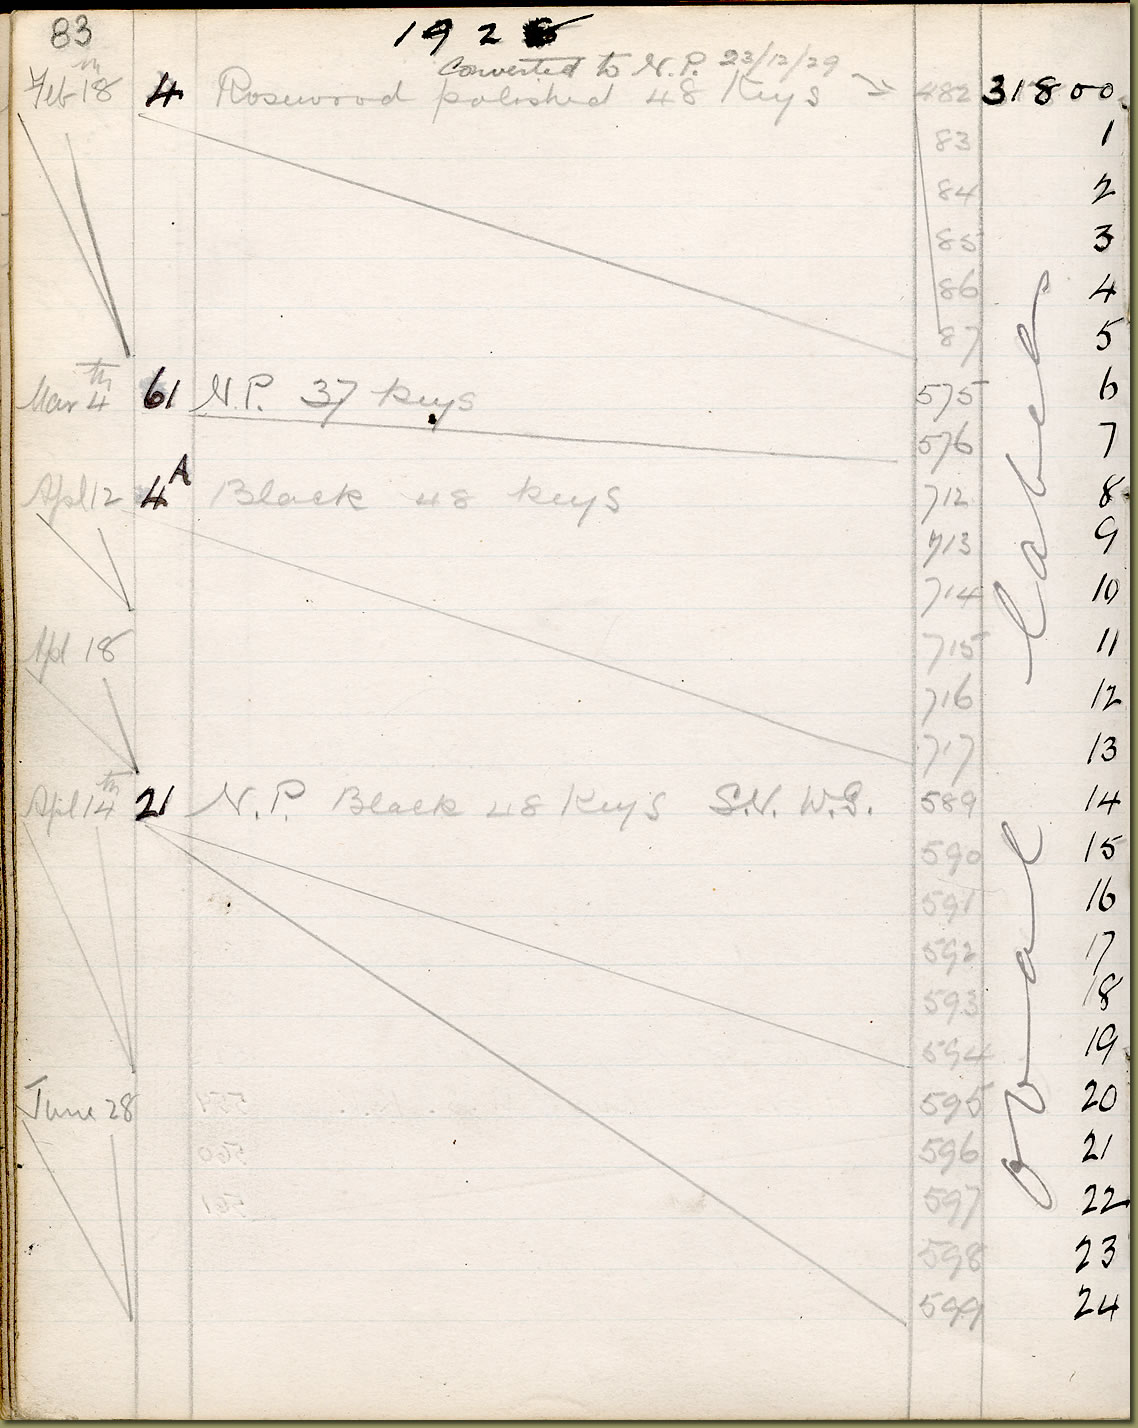 83 192
Converted to N.P. 23/12/29
Feb 18th 4 Rosewood polished 48 Keys 482 31800
83 1
84 2
85 3
86 4
87 5
Mar 4th 61 N.P. 37 keys 575 6
576 7
Apl 12 4A Black 48 keys 712 8
713 9
714 10
Apl 18 715 11
716 12
717 13
Apl 14th 21 N.P. Black 48 Keys S.N. W.G. 589 14
590 15
591 16
592 17
593 18
594 19
June 28 595 20
596 21
597 22
598 23
599 24
oval label